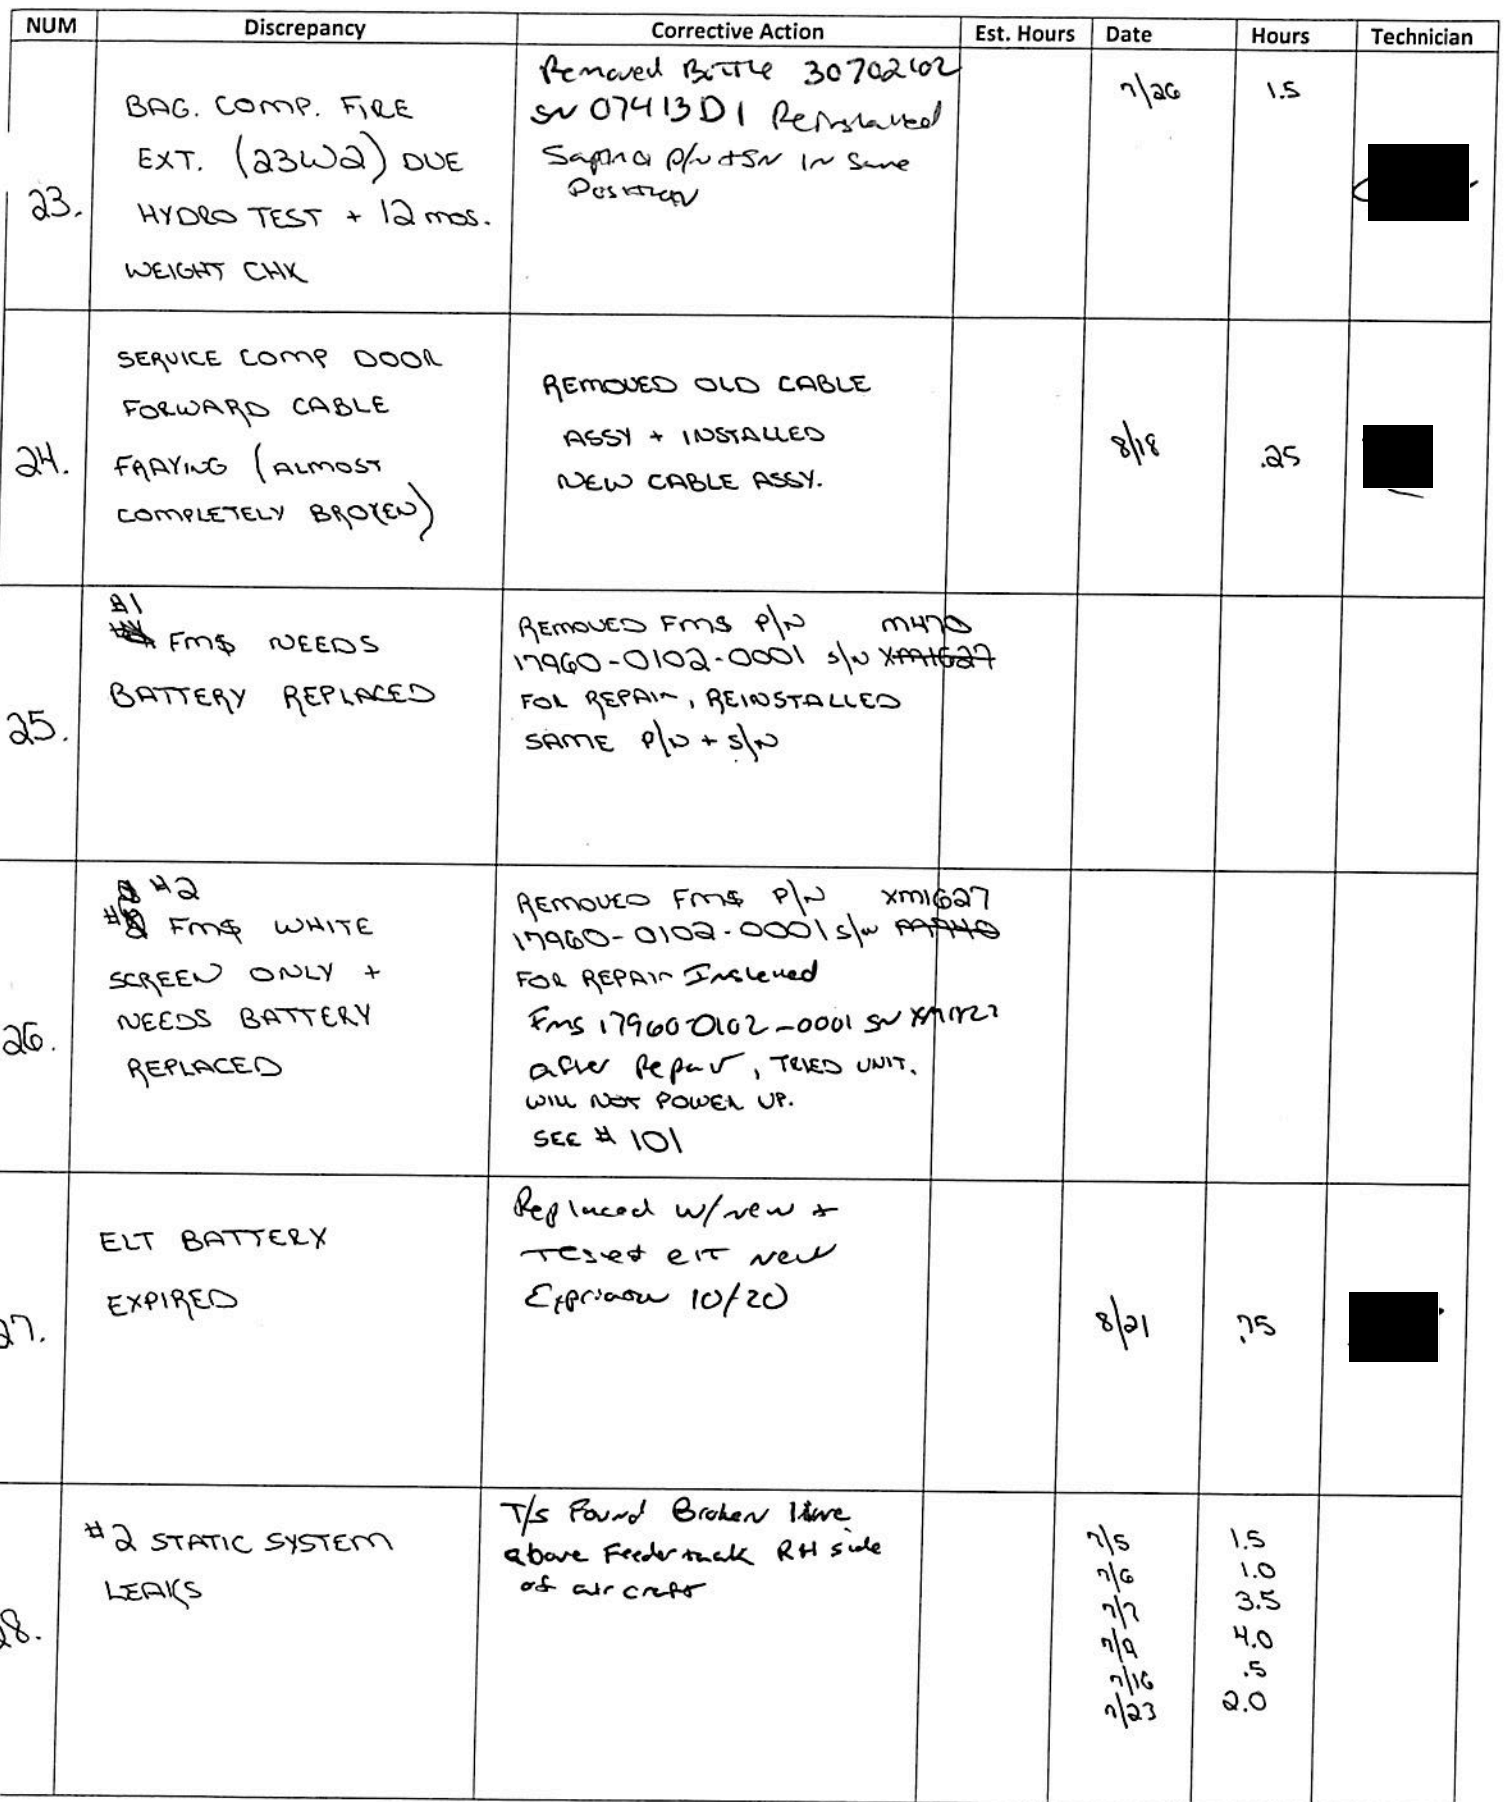 NUM Discrepancy Corrective Action Est. Hours Date Hours Technician
23.
BAG. COMP. FIRE
EXT. (23W2) DUE
HYDRO TEST + 12 mos.
WEIGHT CHK
Removed Bottle 30702102
SN 07413D1 Reinstalled
P/N + SN IN Same
Position
7/26 1.5
24.
SERVICE COMP DOOR
FORWARD CABLE
FRAYING (ALMOST
COMPLETELY BROKEN)
REMOVED OLD CABLE
ASSY + INSTALLED
NEW CABLE ASSY.
8/18 .25
25.
#1
FMS NEEDS
BATTERY REPLACED
REMOVED FMS P/N M470
17960-0102-0001 S/N XM1627
FOR REPAIR, REINSTALLED
SAME P/N + S/N
26.
#2
FMS WHITE
SCREEN ONLY +
NEEDS BATTERY
REPLACED
REMOVED FMS P/N XM1627
17960-0102-0001 S/N
FOR REPAIR Installed
FMS 17960-0102-0001 SN
after Repair, TRIED UNIT.
WILL NOT POWER UP.
SEE # 101
27.
ELT BATTERY
EXPIRED
Replaced w/new +
Tested ELT New
Expiration 10/20
8/21 .75
28.
#2 STATIC SYSTEM
LEAKS
T/S Found Broken line
above Feeder tank RH side
of aircraft
7/5 1.5
7/6 1.0
7/7 3.5
7/9 4.0
7/16 .5
7/23 2.0